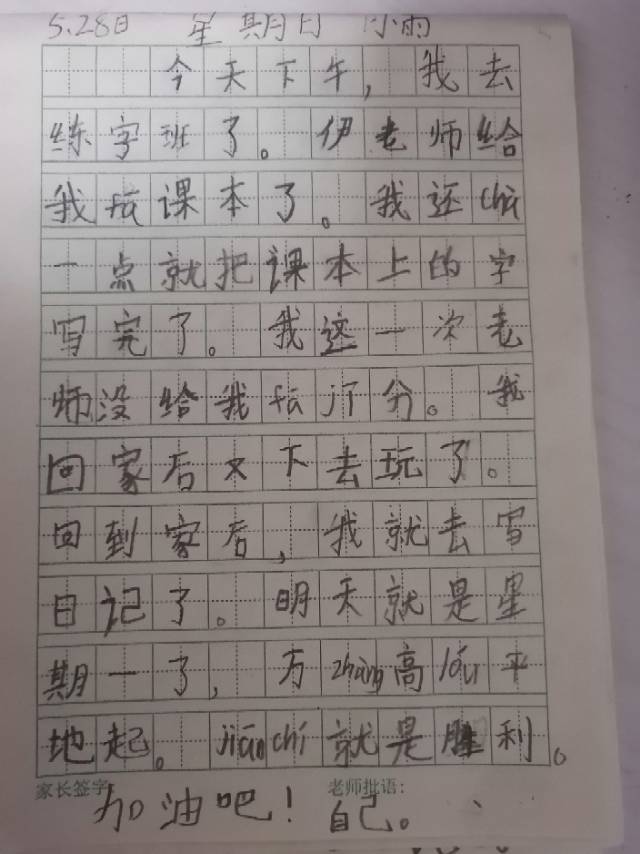 5.28日 星期日 小雨
今天下午，我去
练字班了。伊老师给
我fā课本了。我还chà
一点就把课本上的字
写完了。我这一次老
师没给我fā jī分。我
回家后又下去玩了。
回到家后，我就去写
日记了。明天就是星
期一了，万zhàng高lóu平
地起。jiānchí就是胜利。
家长签字 老师批语：
加油吧！自己。